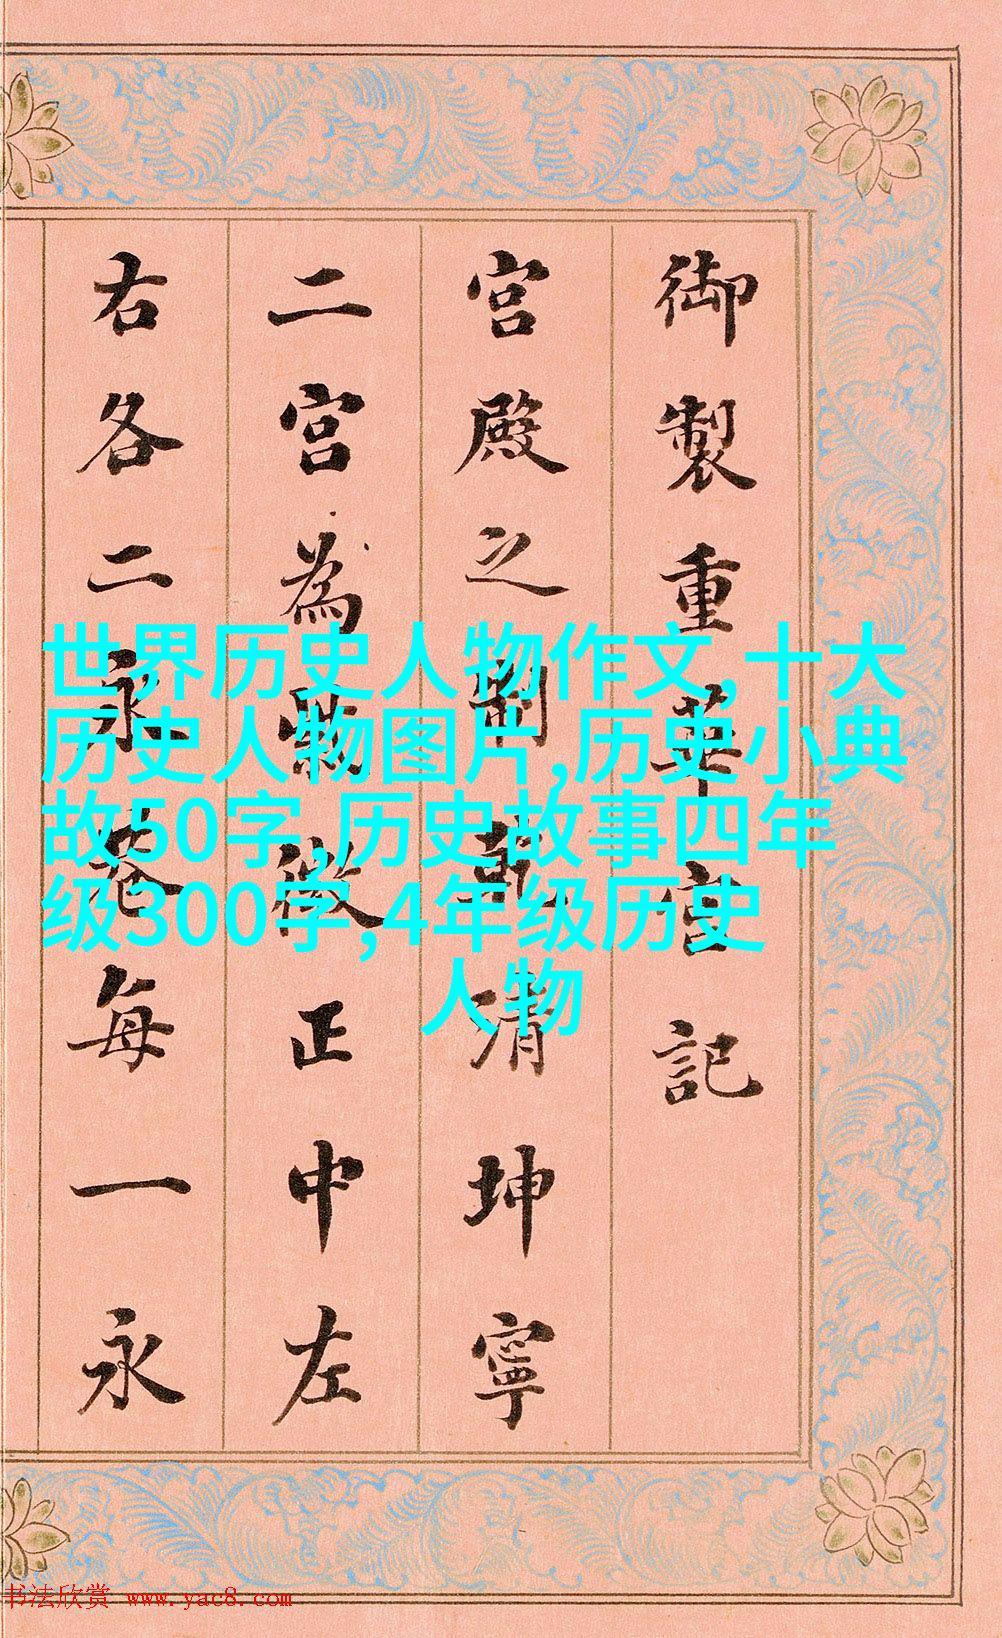 御製重華宮記
宮殿之制乾清坤寧
二宮為紫微正中左
右各二永巷每一永
世界历史人物作文,十大
历史人物图片,历史小典
故50字,历史故事四年
级300字,4年级历史
人物
书法欣赏 www.yac8.com